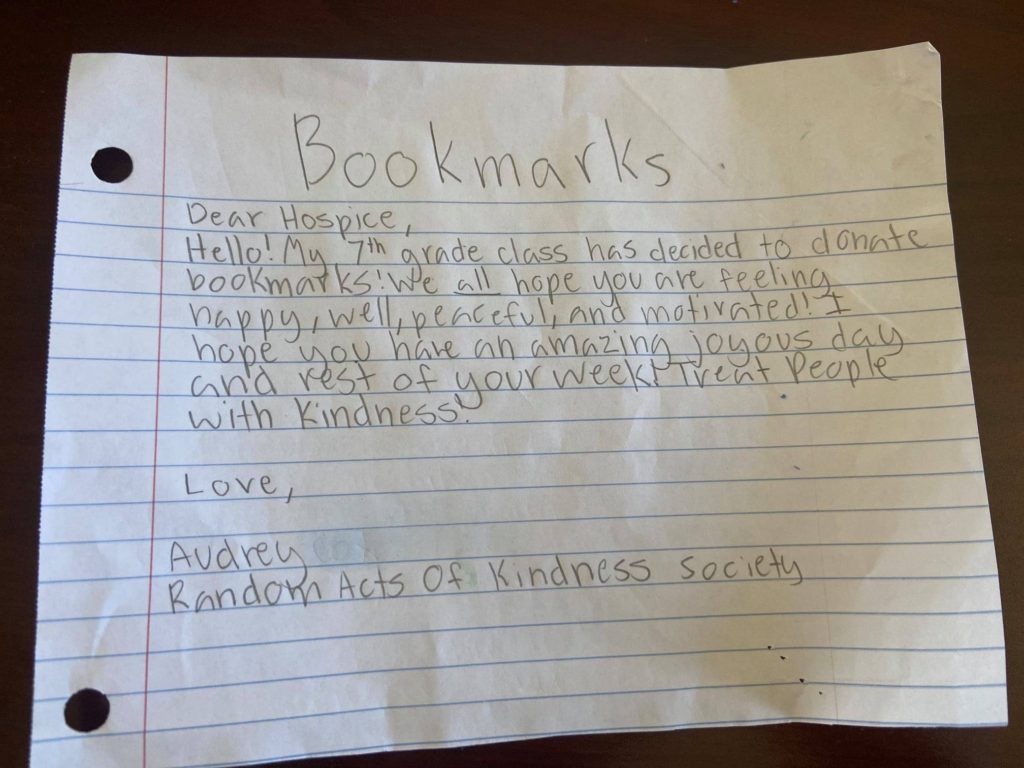 Bookmarks
Dear Hospice,
Hello! My 7th grade class has decided to donate
bookmarks! We all hope you are feeling
happy, well, peaceful, and motivated! I
hope you have an amazing joyous day
and rest of your week! Treat People
with Kindness!
Love,
Audrey
Random Acts Of Kindness Society